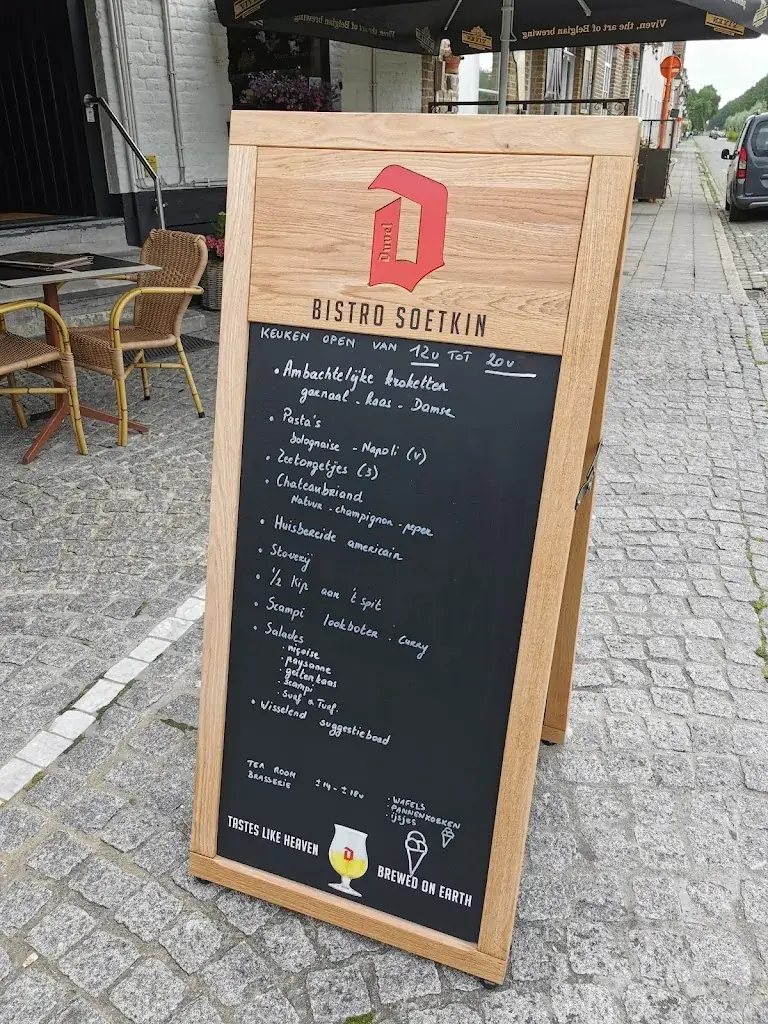 Viven, the art of Belgian brewing
VIVEN
Viven, the art of Belgian brewing
VIVEN
Duvel
BISTRO SOETKIN
KEUKEN OPEN VAN 12U TOT 20U
• Ambachtelijke kroketten
garnaal - Kaas - Damse
• Pasta's
bolognaise - Napoli (v)
• Zeetongetjes (3)
• Chateaubriand
Natuur - champignon - peper
• Huisbereide americain
• Stoverij
• 1/2 Kip aan 't spit
• Scampi lookboter - Curry
• Salades
• niçoise
• paysanne
• geitenkaas
• Scampi
• Surf 'n Turf.
• Wisselend suggestiebord
TEA ROOM
BRASSERIE
± 14 - ± 18u
• WAFELS
• PANNENKOEKEN
• ijsjes
TASTES LIKE HEAVEN
BREWED ON EARTH